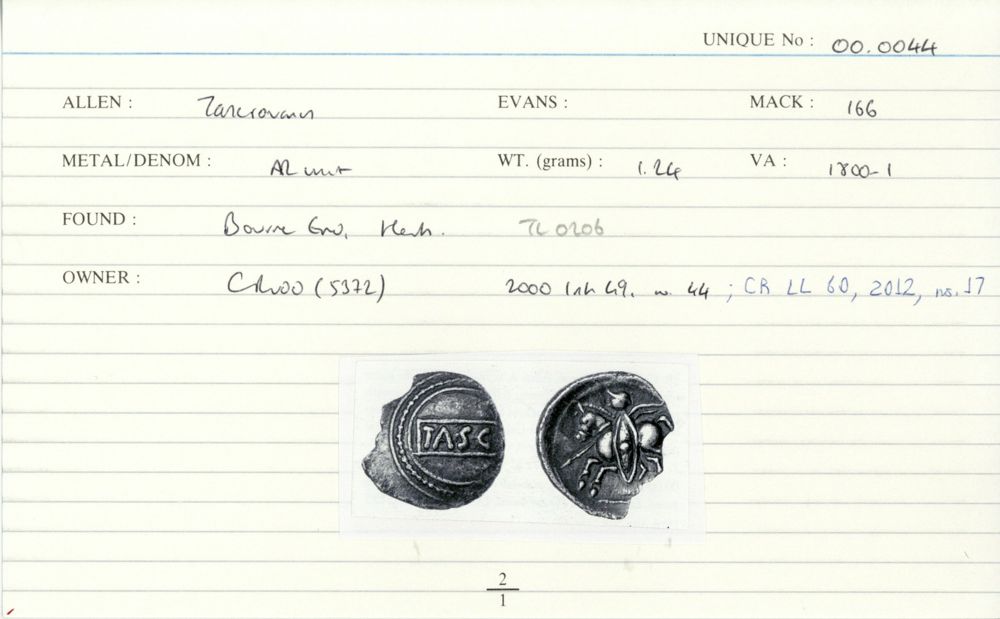 UNIQUE No : 00.0044
ALLEN : Tasciovanus EVANS : MACK : 166
METAL/DENOM : AR unit WT. (grams) : 1.24 VA : 1800-1
FOUND : Bourne End, Herts. TL 0206
OWNER : CR00 (5372) 2000 49, no. 44 ; CR LL 60, 2012, no. 17
TASC
2
1